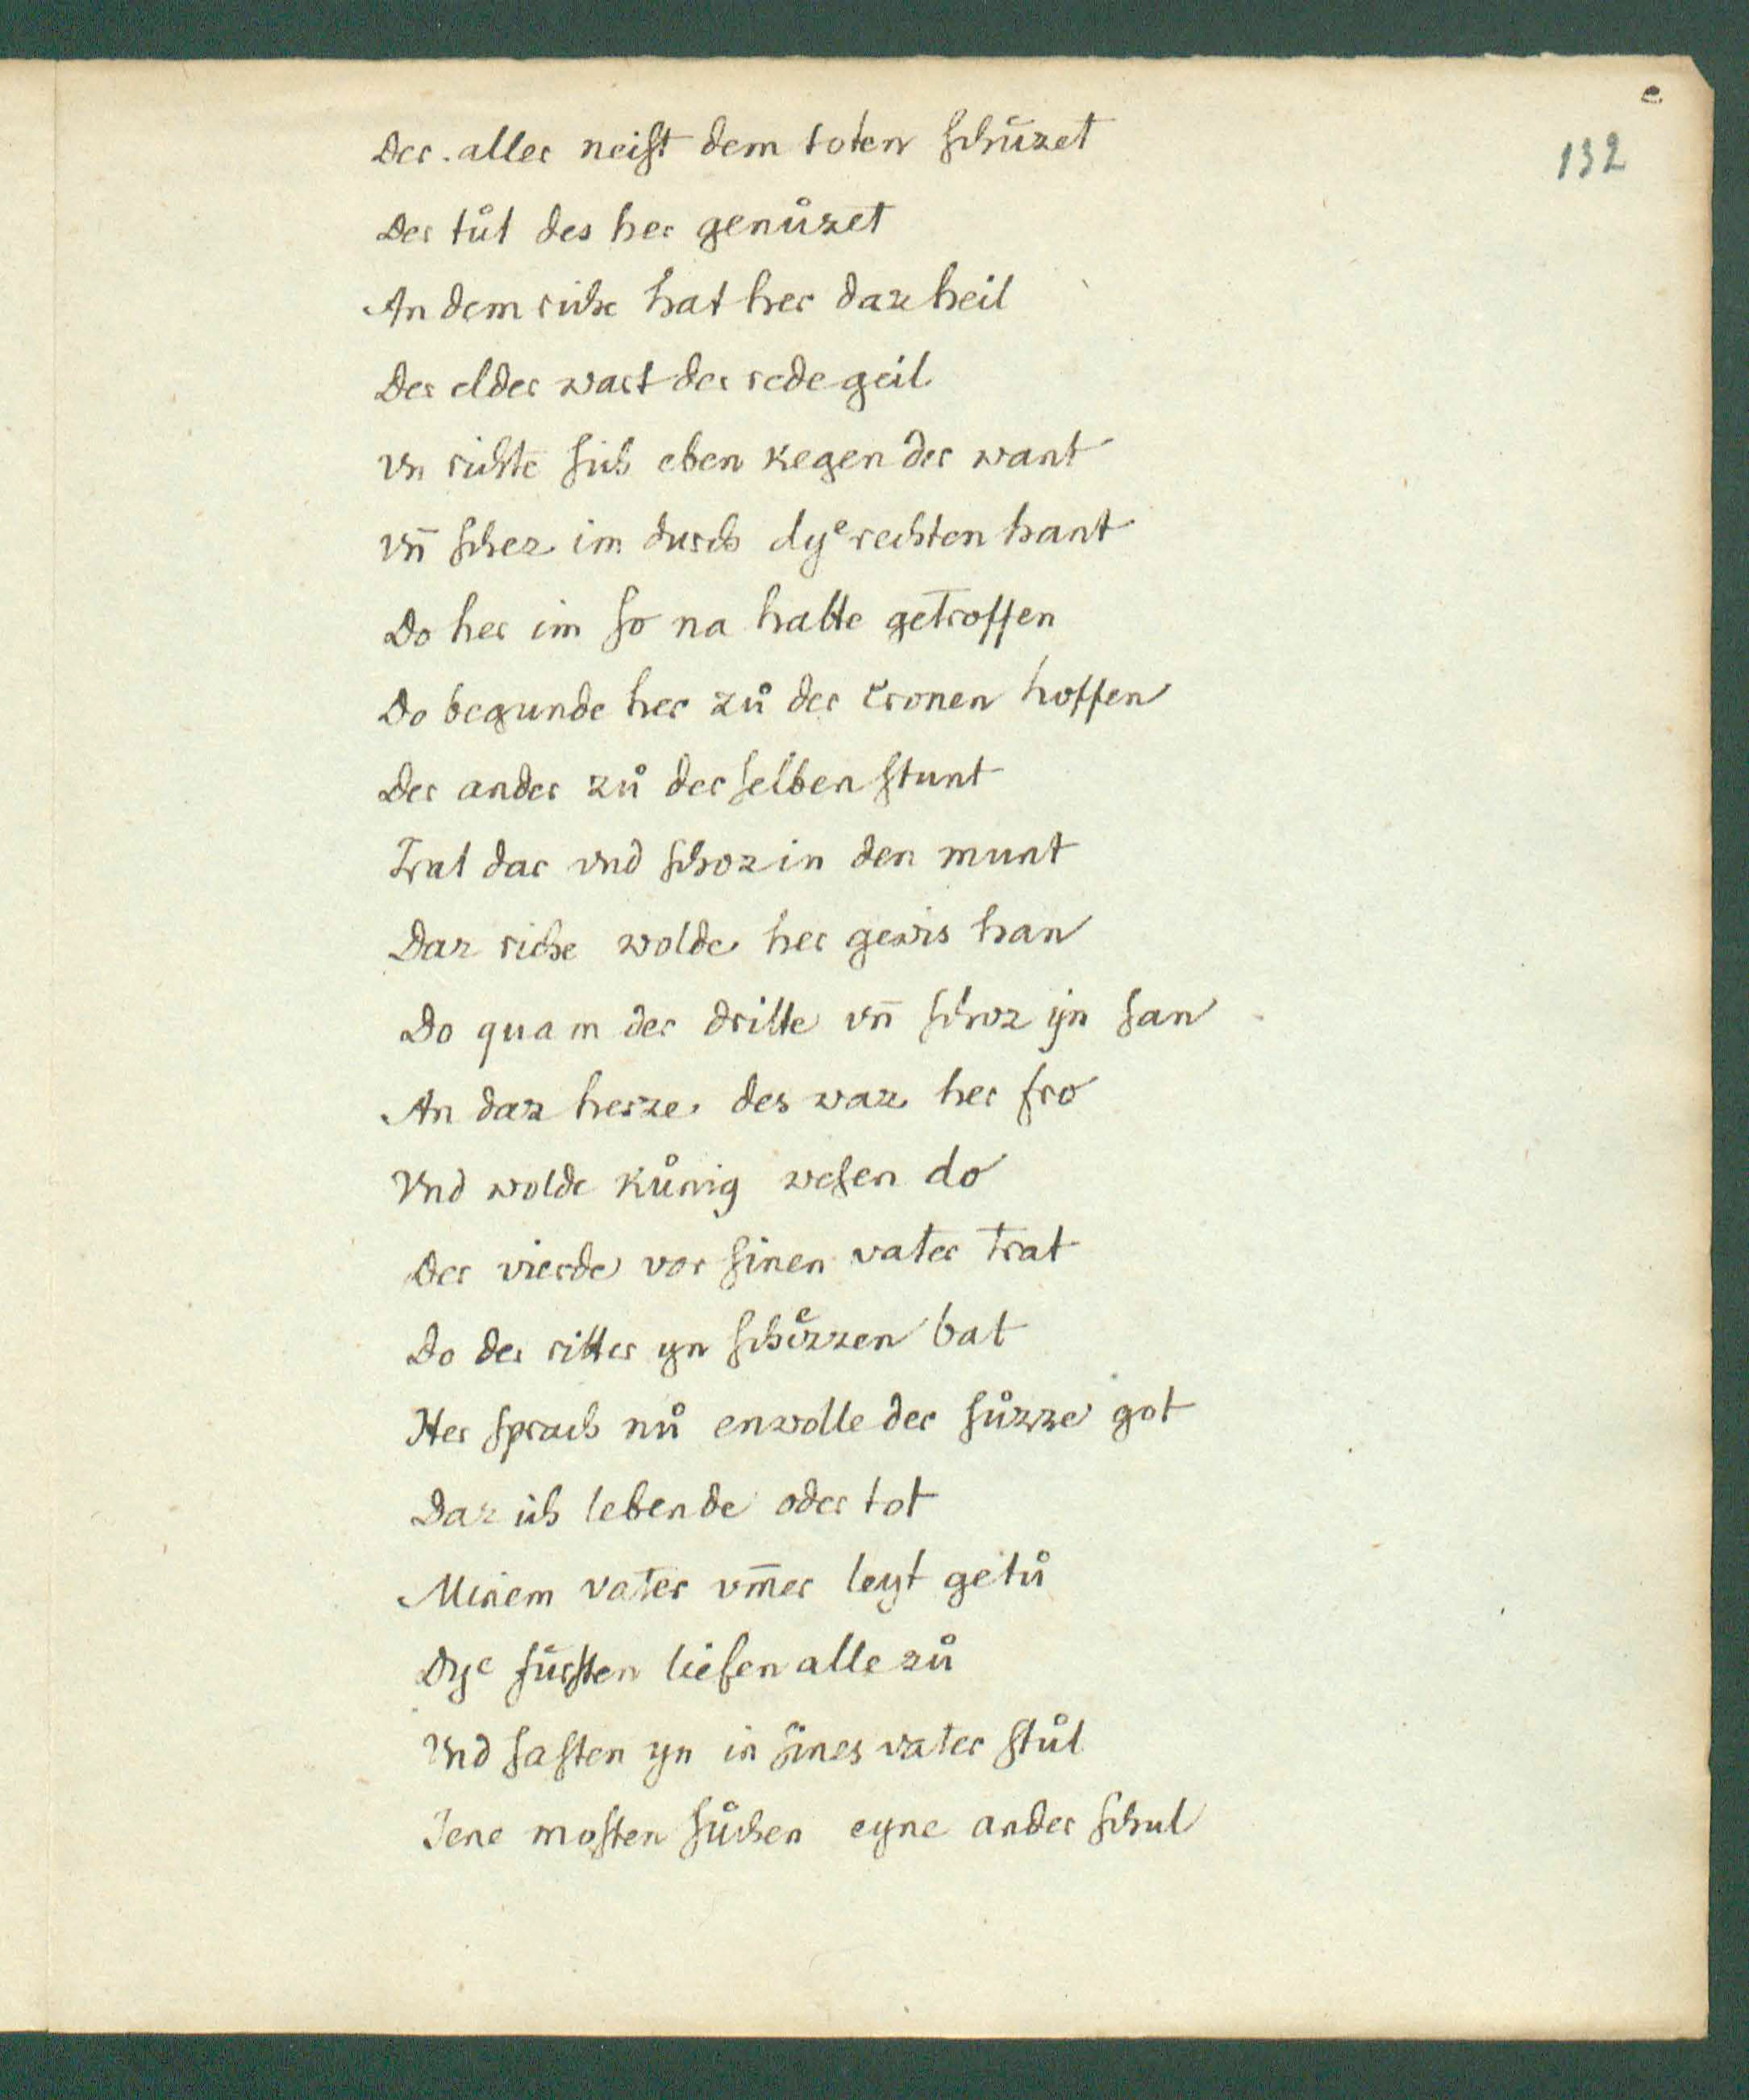 e
132
Der aller neiſt dem toten ſchůzet
Der tůt des her genůzet
An dem riche hat her daz heil
Der elder wart der rede geil
Vn richtē ſich eben kegen der want
Vn̄ ſchez im durch dyͤ rechten hant
Do her im ſo na hatte getroffen
Do begunde her zů der cronen hoffen
Der ander zů der ſelben ſtunt
Trat dar vnd ſchoz in den munt
Daz riche wolde her gewis han
Do quam der dritte vn̄ ſchoz ijn ſan
An daz herze des waz her fro
Vnd wolde kůnig weſen do
Der vierde vor ſinen vater trat
Do der ritter yn ſchͤizzen bat
Her ſprach nů enwolle der ſůzze got
Daz ich lebende oder tot
Minem vater vm̄er leyt getů
Dye fůrſten liefen alle zů
Vnd ſaſten yn in ſines vater ſtůl
Jene moſten ſůchen eyne ander ſchul